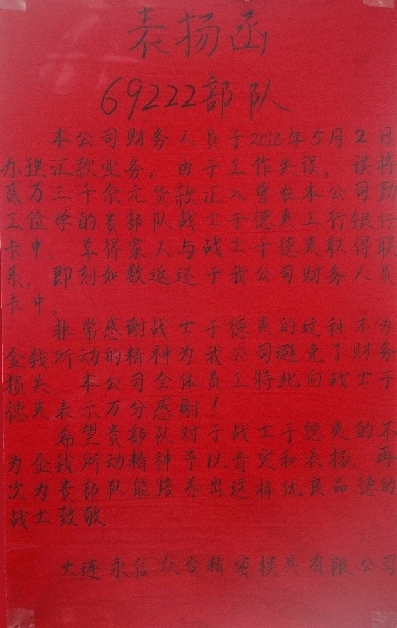 表扬函
69222部队
本公司财务人员于2012年5月2日
办理汇款业务。由于工作失误，误将
贰万三千余元货款汇入曾在本公司勤
工俭学的贵部队战士于德爽工行银行
卡中，幸得家人与战士于德爽取得联
系，即刻如数返还于我公司财务人员
卡中。
非常感谢战士于德爽的这种不为
金钱所动的精神为我公司避免了财务
损失 本公司全体员工特此向战士于
德爽表示万分感谢！
希望贵部队对于战士于德爽的不
为金钱所动精神予以肯定和表扬。再
次为贵部队能培养出这样优良品德的
战士致敬
大连永信众合精密模具有限公司